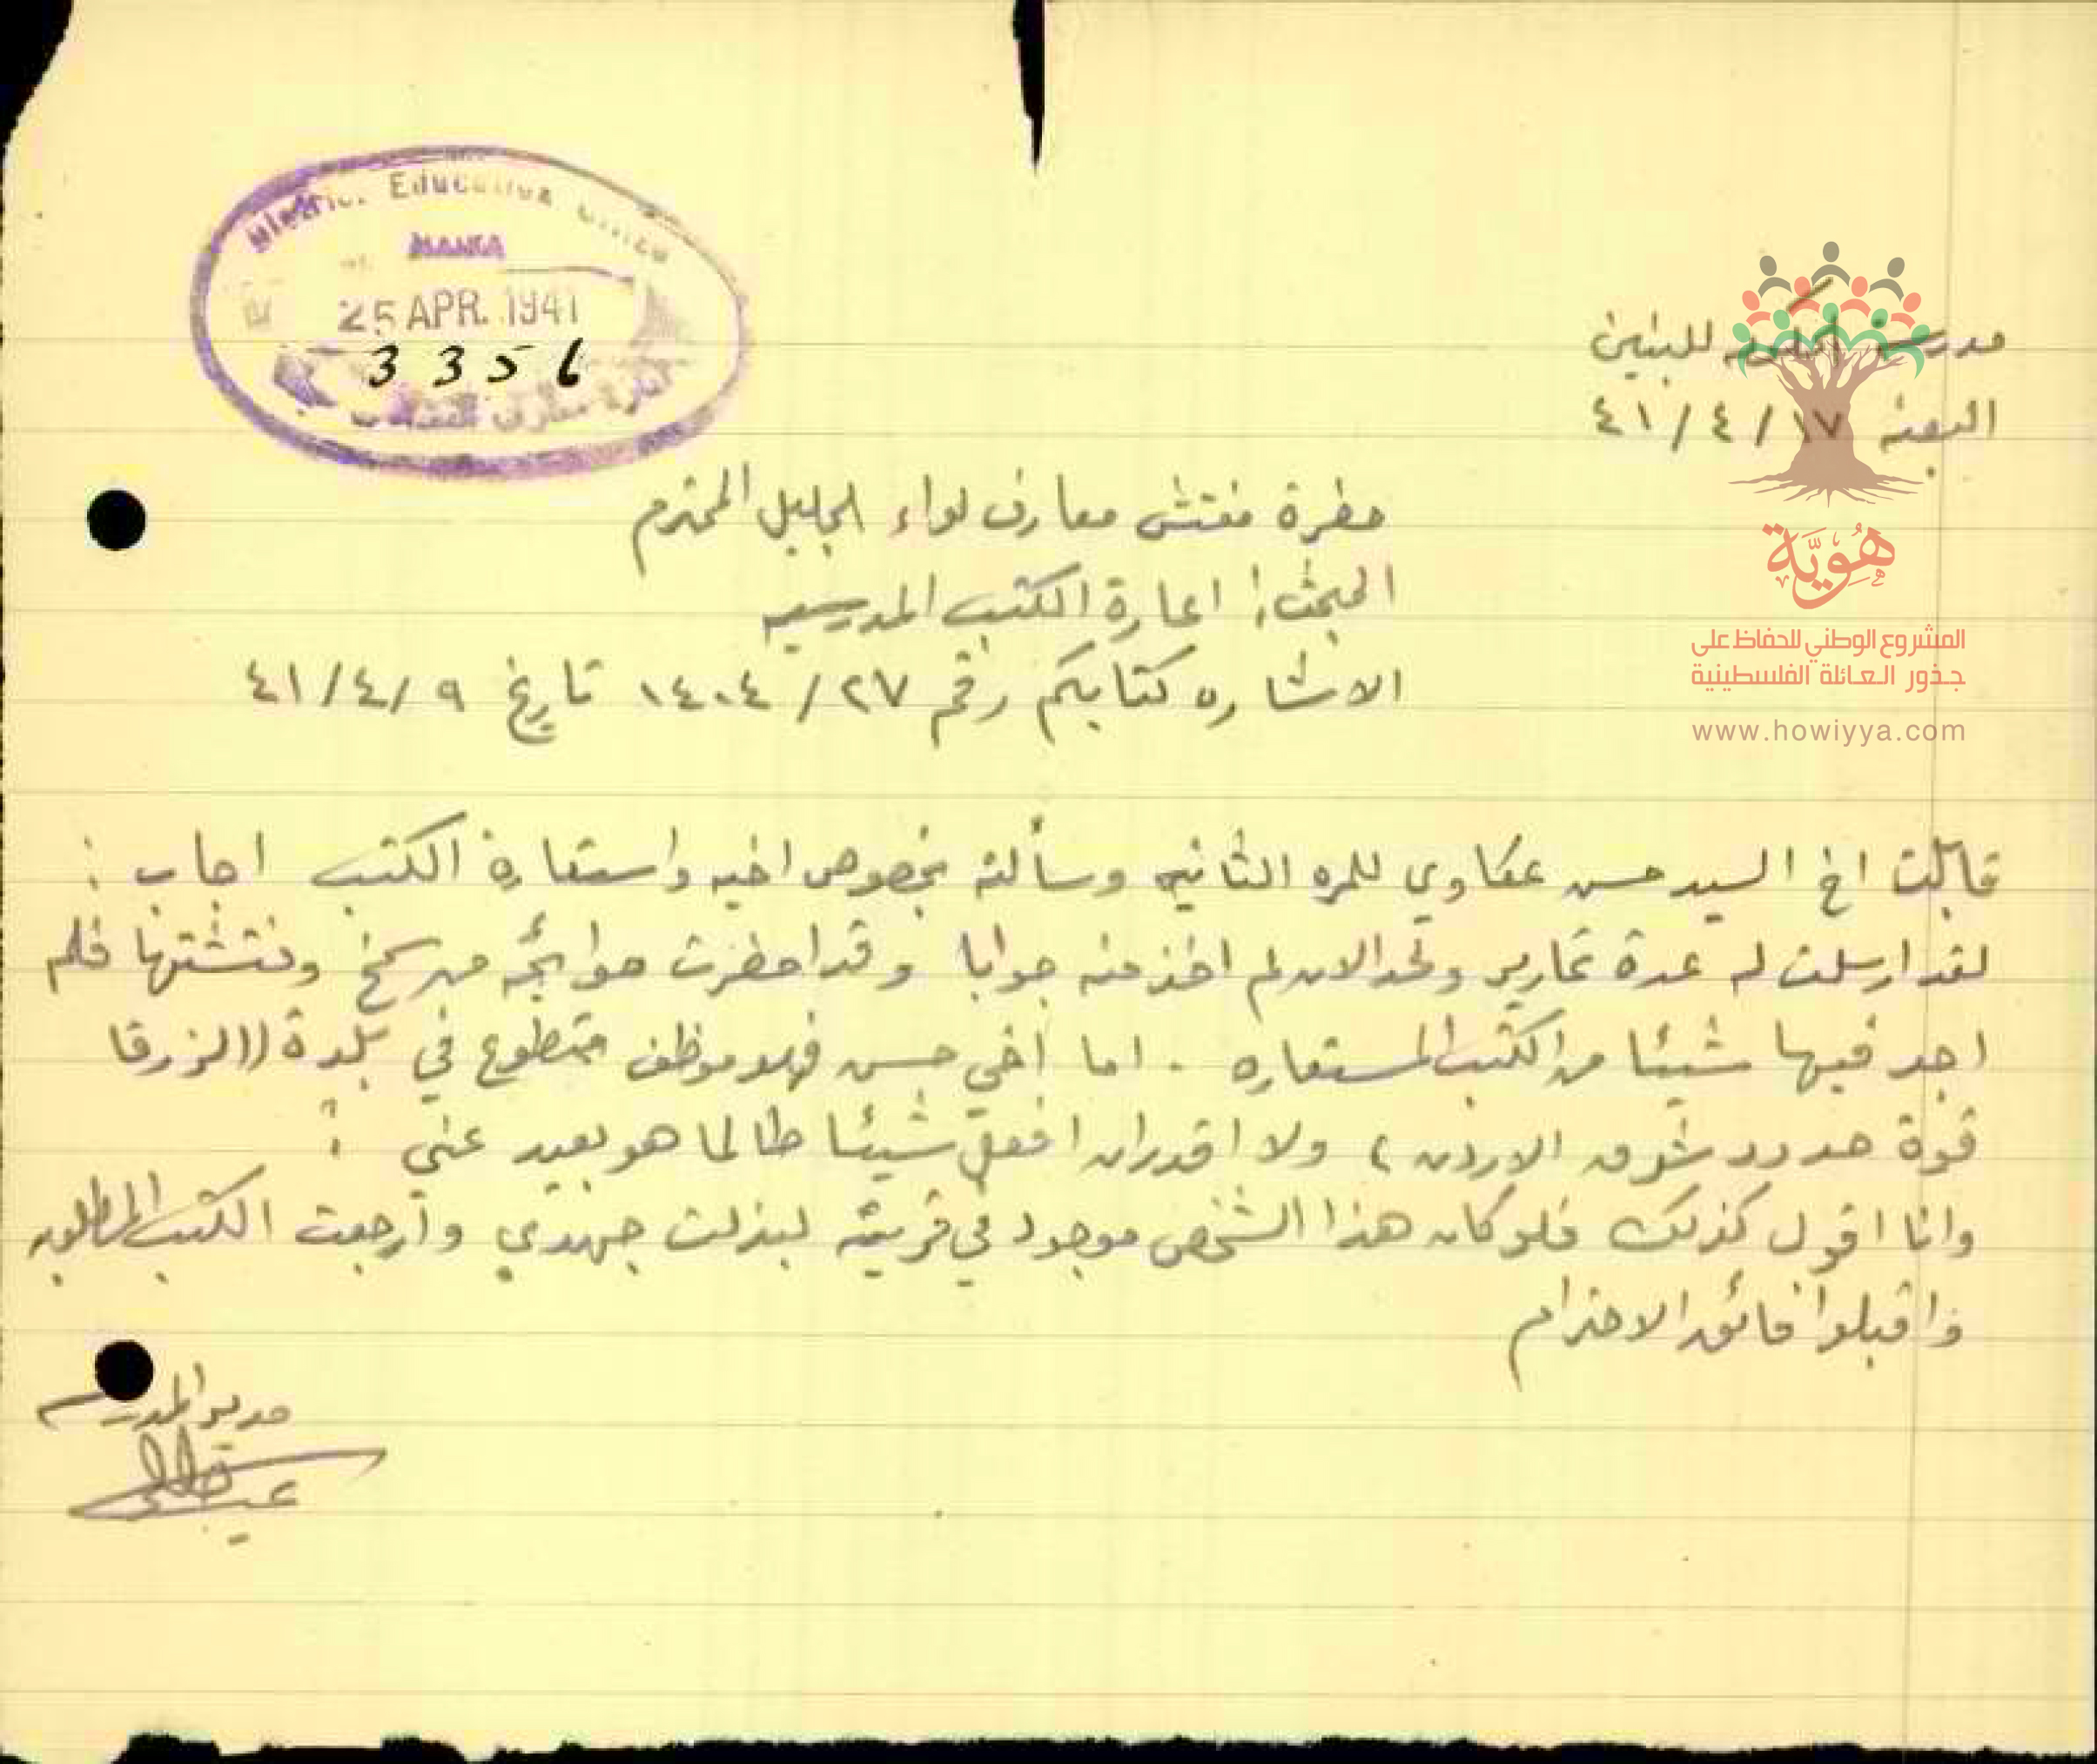 District Education Office
25 APR. 1941
3356
مدرسة للبنين
البعنه ١٧ / ٤ / ٤١
هُوِيَّة
المشروع الوطني للحفاظ على
جذور العائلة الفلسطينية
www.howiyya.com
حضرة مفتش معارف لواء الجليل المحترم
المبحث: اعارة الكتب المدرسيه
الاشاره كتابكم رقم ٢٧/ ١٤٠٤ تاريخ ٩ /٤/ ٤١
قابلت اخ السيد حسن عكاوي للمره الثانيه وسألته بخصوص اخيه واستعارة الكتب اجاب :
لقد ارسلت له عدة تحارير ولحد الان لم اخذ منه جوابا وقد احضرت حوائجه من سمخ وفتشتها فلم
اجد فيها شيئا من الكتب المستعاره . اما أخي حسن فهو موظف متطوع في بلدة ((الزرقا
قوة حدود شرق الاردن ) ولا اقدر ان افعل شيئا طالما هو بعيد عني :
وانا اقول كذلك فلو كان هذا الشخص موجود في قريته لبذلت جهدي وأرجعت الكتب المطلوبه
واقبلوا فائق الاحترام
مدير المدرسه